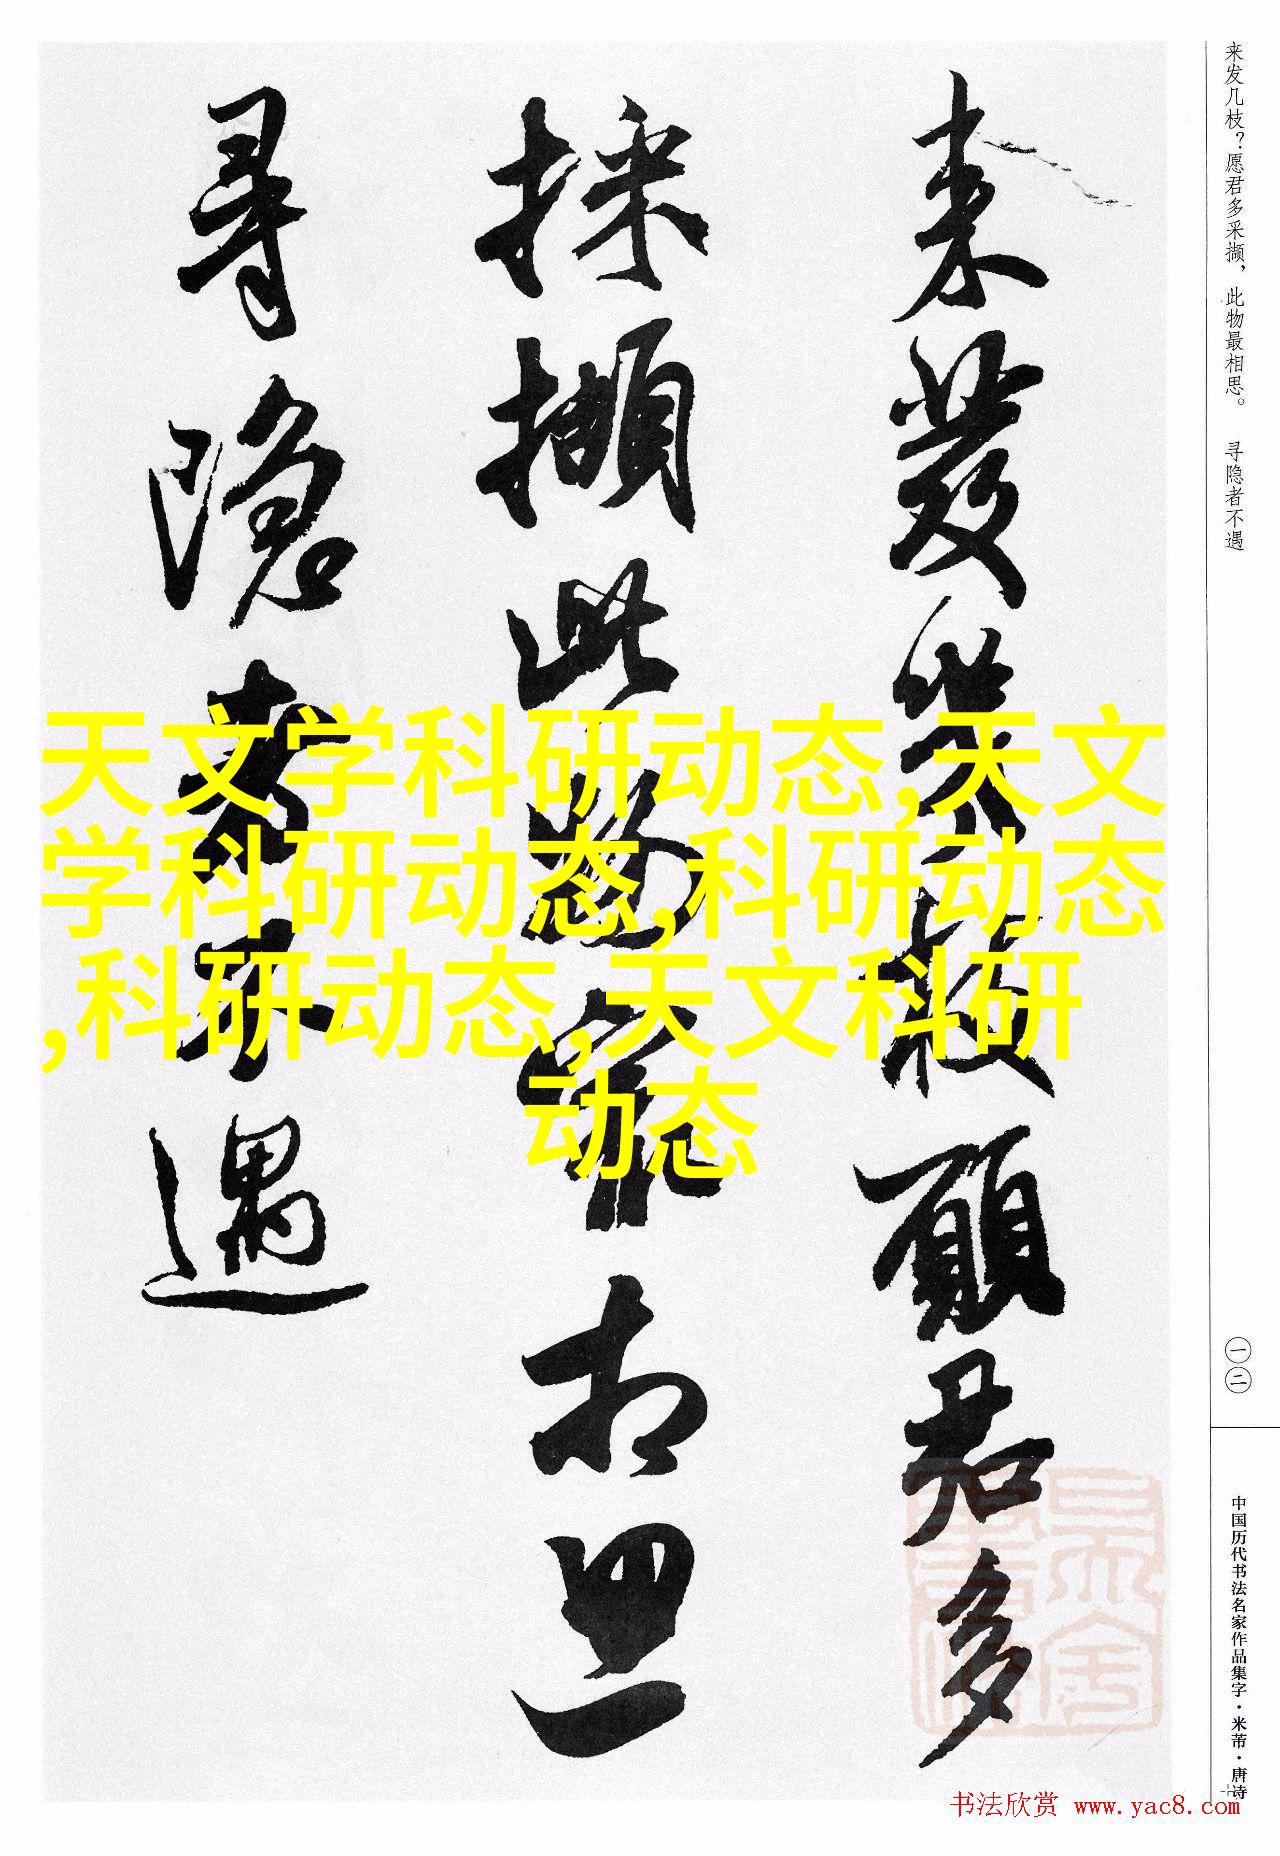 来发几枝？愿君多采撷，此物最相思。 寻隐者不遇
一二
中国历代书法名家作品集字·米芾·唐诗
来發幾枝願君多
採擷此物最相思
尋隱者不遇
天文学科研动态,天文
学科研动态,科研动态
,科研动态,天文科研
动态
书法欣赏 www.yac8.com